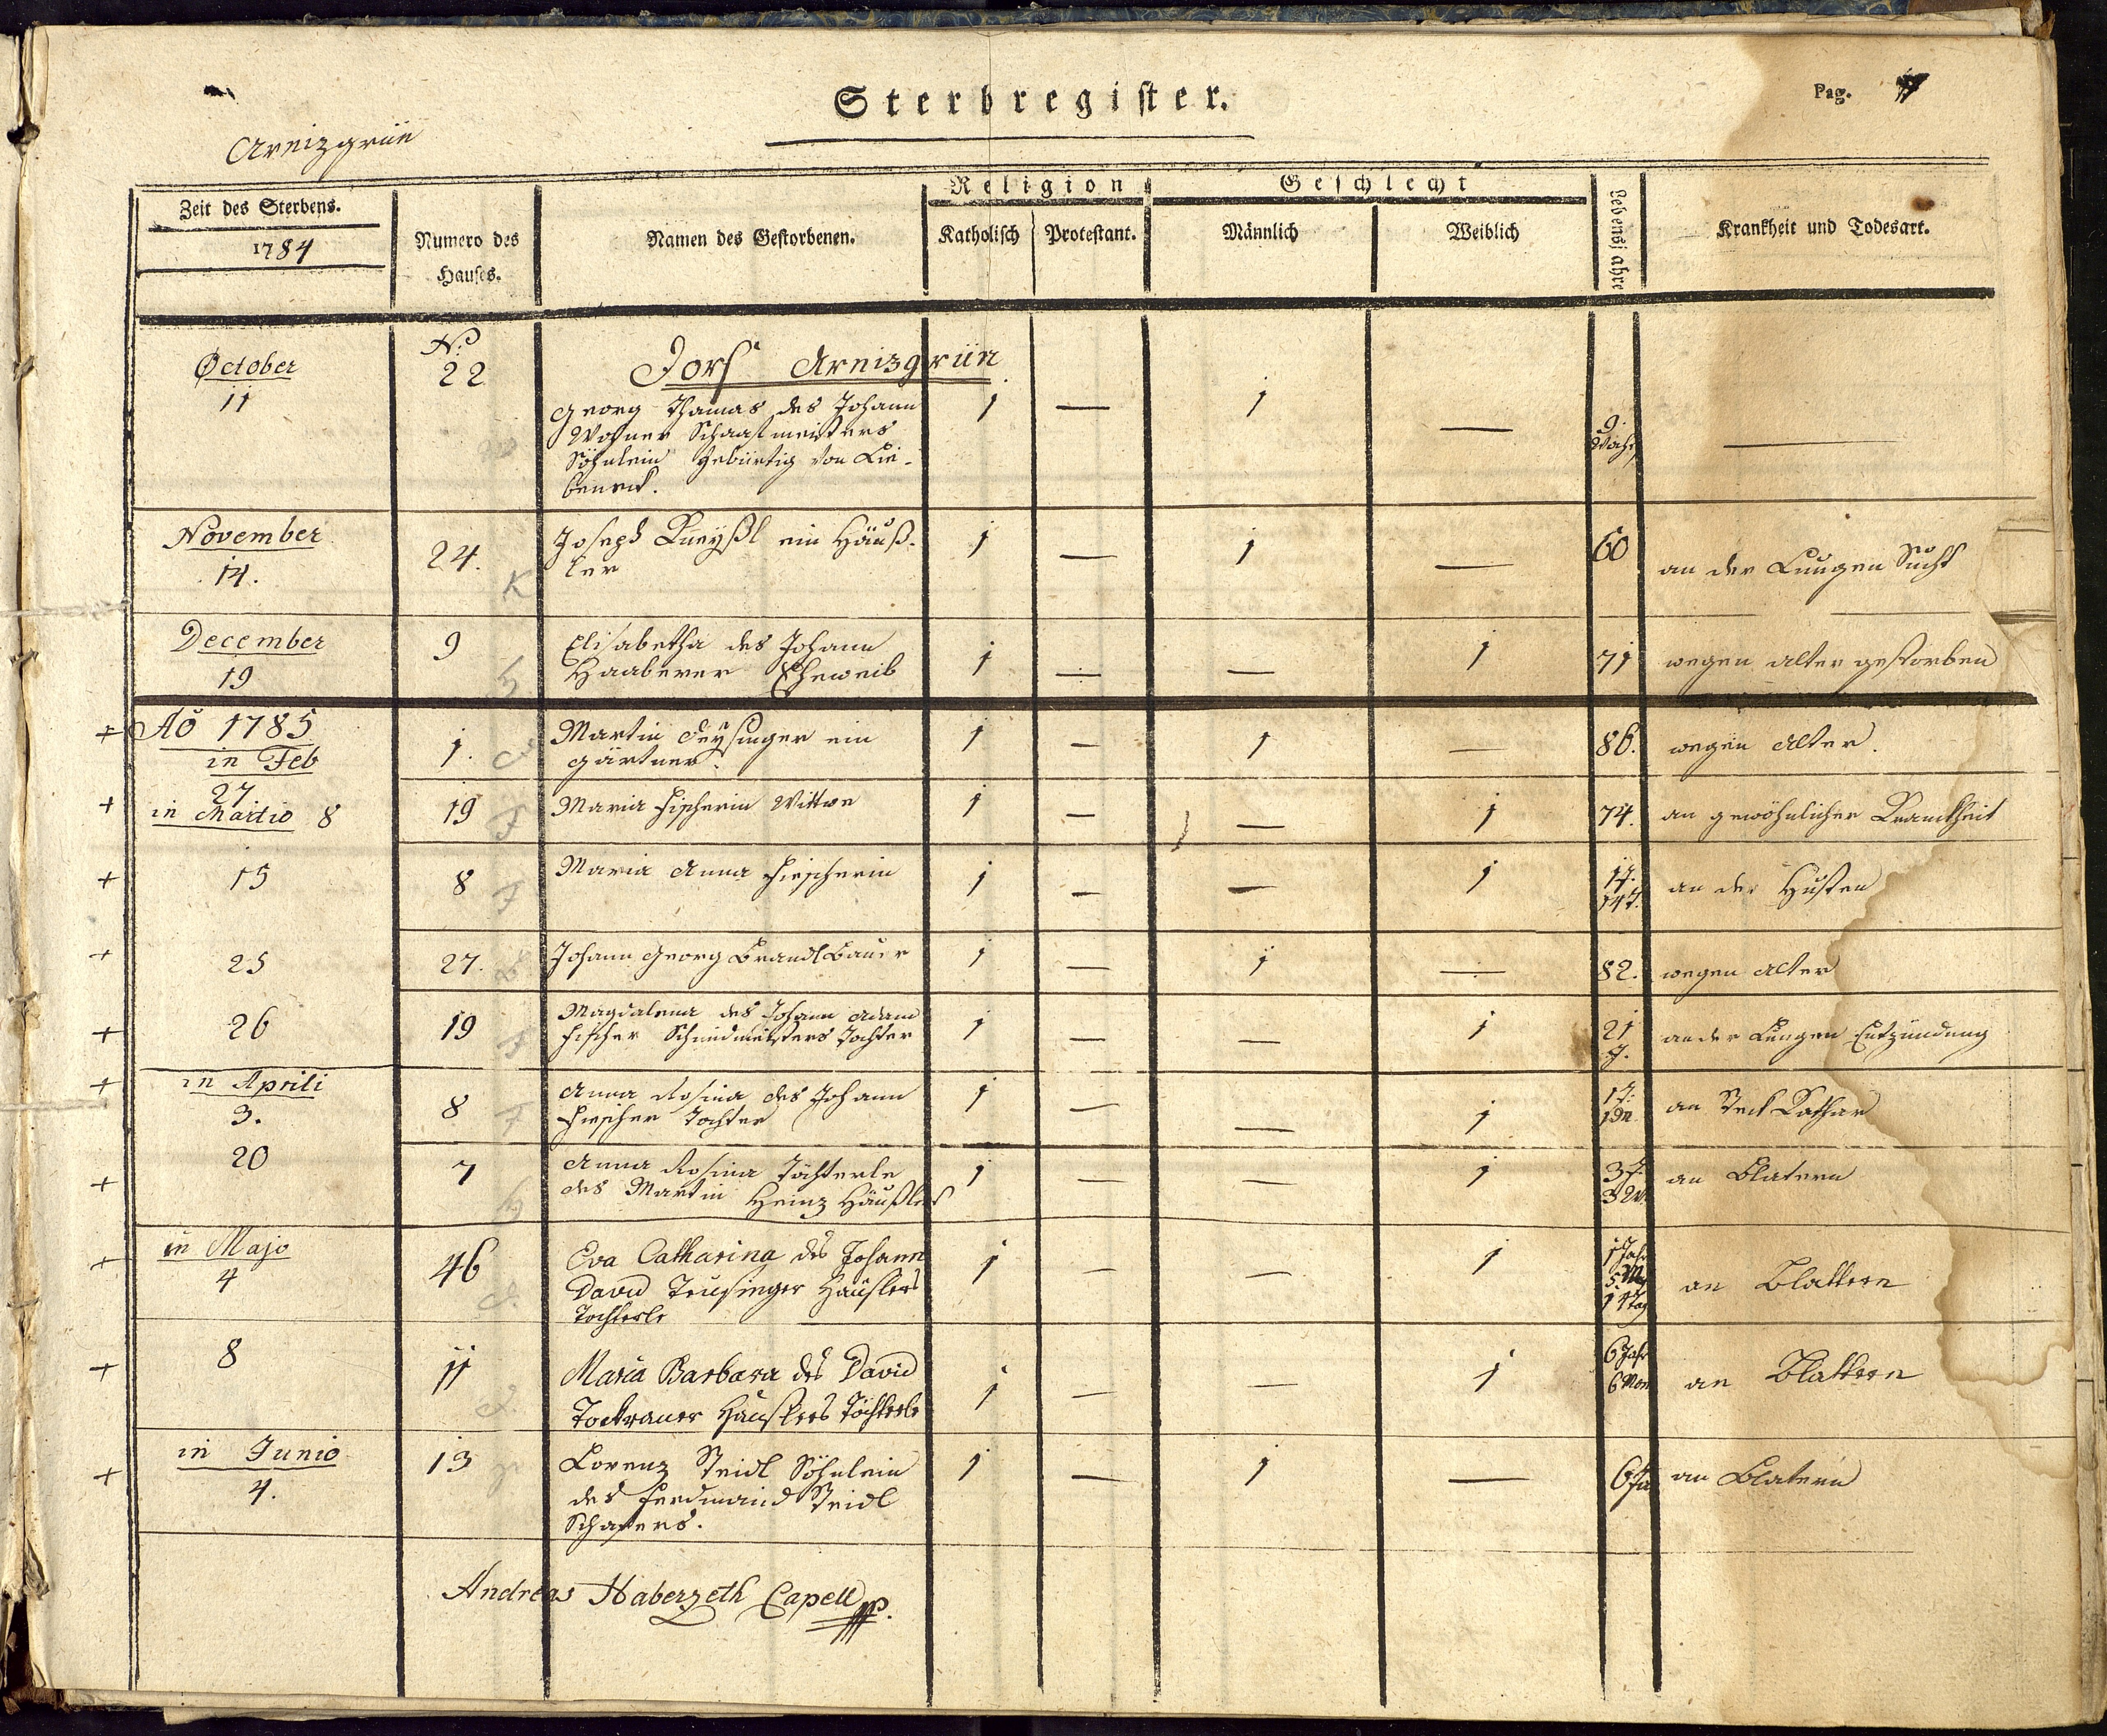 Sterbregister.
Pag.
Arnizgrün
Zeit des Sterbens.
1784
Numero des
Hauses.
Namen des Gestorbenen.
Religion
Katholisch
Protestant.
Geschlecht
Männlich
Weiblich
Lebensjahre
Krankheit und Todesart.
Dorf Arnizgrün
October
11
No.
22
Georg Thamas des Johann
Schaafmeisters
Söhnlein gebürtig von Lie-
beneck.
1 — 1 —
9
—
November
14.
24.
Joseph Kneyßl ein Häuß-
ler
1 — 1 —
60
an der Lungen Sucht
December
19
9
Elisabetha des Johann
Haaberer Eheweib
1 — — 1
71
wegen alter gestorben
Aõ 1785
in Feb
27
1.
Martin Deysinger ein
gärtner.
1 — 1 —
86.
wegen alter.
in Martio 8
19
Maria Fischerin Wittwe
1 — — 1
74.
an gewöhnlicher Kranckheit
15
8
Maria Anna Fischerin
1 — — 1
an der Husten
25
27.
Johann Georg Brandl Bauer
1 — 1 —
82.
wegen alter
26
19
Magdalena des Johann Adam
Fischer Schmidmeisters Tochter
1 — — 1
21
J.
an der Lungen Entzündung
in Aprili
3.
8
Anna Rosina des Johann
Fischer Tochter
1 — — 1
1 J.
an Steck Kathar
20
7
Anna Rosina Töchterle
des Martin Heinz Häußlers
1 — — 1
3 J.
3 W.
an Blatern
in Majo
4
46
Eva Catharina des Johann
David Teusinger Häuslers
Tochterle
1 — — 1
1 Jahr
5 M
14 Tag
an Blattern
8
11
Maria Barbara des David
Häuslers Töchterle
1 — — 1
6 Jahr
6 Mon
an Blattern
in Junio
4.
13
Lorenz Steidl Söhnlein
des Ferdinand Steidl
Schafers.
1 — 1 —
6 Ja
an Blatern
Andreas Haberzeth Capell